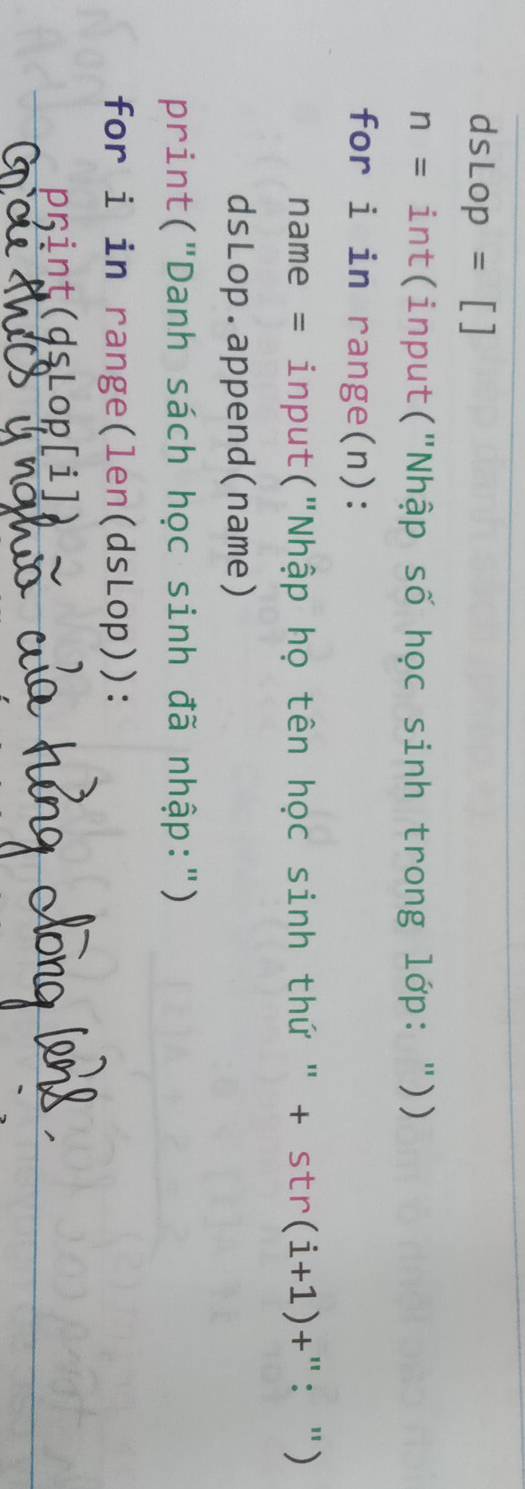 dsLop = []
n = int(input("Nhập số học sinh trong lớp: "))
for i in range(n):
    name = input("Nhập họ tên học sinh thứ " + str(i+1)+": ")
    dsLop.append(name)
print("Danh sách học sinh đã nhập:")
for i in range(len(dsLop)):
    print(dsLop[i])
Giải thích ý nghĩa của từng dòng lệnh